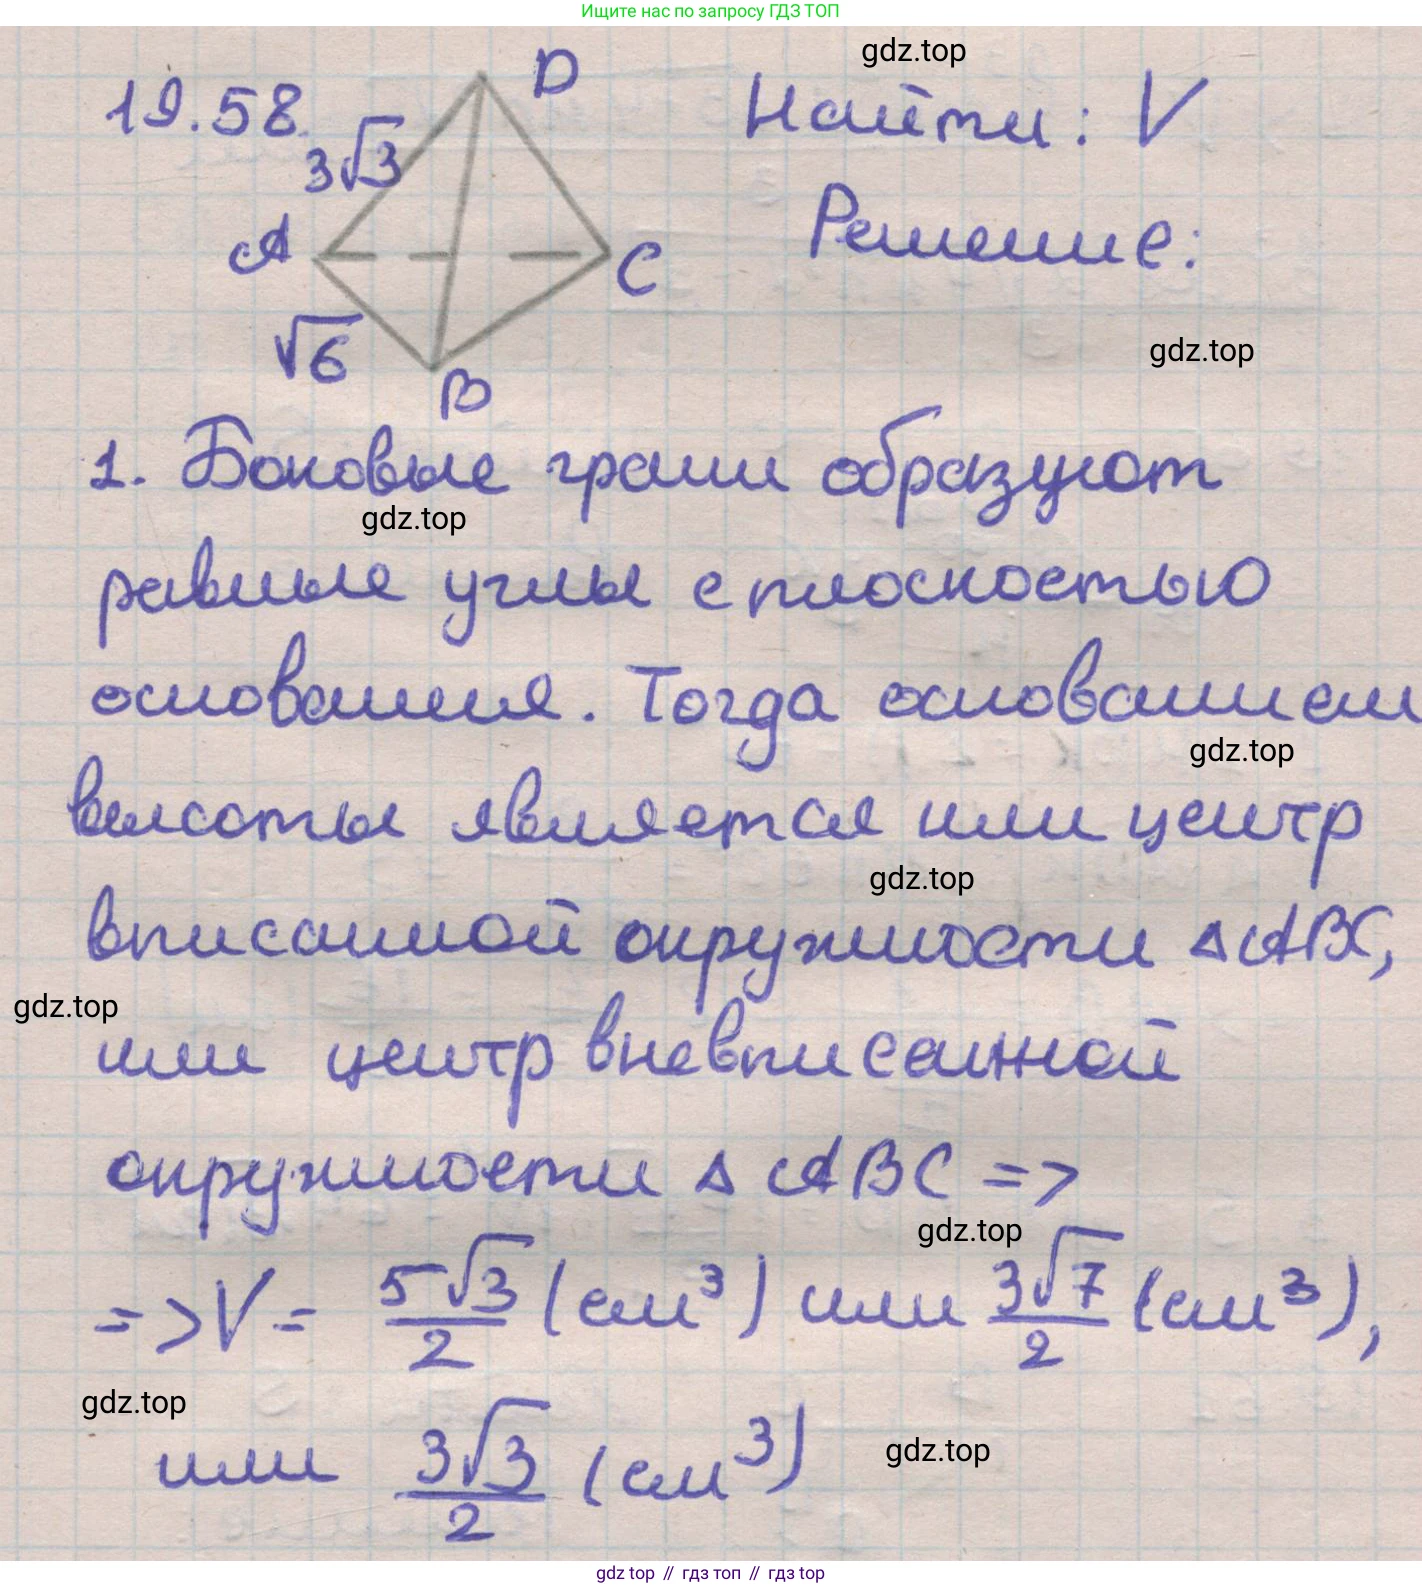 Ищите нас по запросу ГДЗ ТОП
gdz.top
19.58.
D
Найти: V
3√3
A
C
Решение:
√6
gdz.top
B
1. Боковые грани образуют
gdz.top
равные углы с плоскостью
основания. Тогда основанием
gdz.top
высоты является или центр
gdz.top
вписанной окружности △ABC,
gdz.top
или центр вневписанной
окружности △ ABC =>
gdz.top
=> V = 5√3/2 (см³) или 3√7/2 (см³),
gdz.top
или 3√3/2 (см³)
gdz.top
gdz top // гдз топ // гдз top